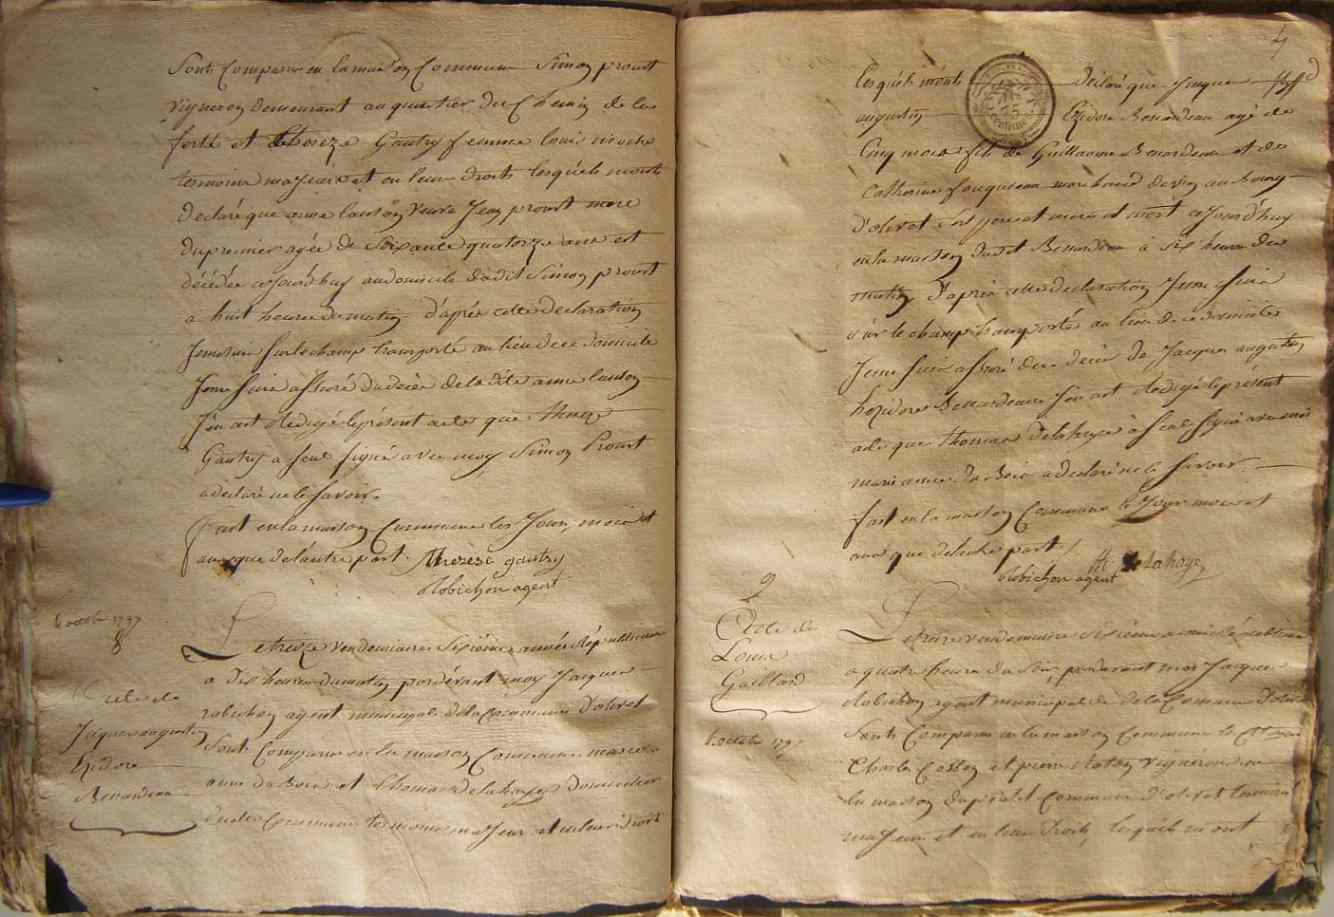 Sont Comparu en la maison Commune Simon prout
vigneron demeurant au quartier du Chemin de la
ferté et thereze Gautry femme louis
temoins majeurs et en leurs droits lesquels mont
declaré que anne lanson veuve Jean prout mere
du premier agée de Soixante quatorze ans est
décédée aJourd'huy au domicile dudit Simon prout
a huit heures du matin d'après cette declaration
Je me suis Sur le champ transporté au lieu de ce domicile
Je me suis assuré du deces de la dite anne lanson
J'en ait Redigé le présent acte que therez
Gautry a Seul signé avec moy Simon Prout
a declaré ne le Savoir.
fait en la maison Commune les Jour, mois et
ans que de l'autre part. Therese gautry
Robichon agent
4 octob 1797
8
Acte de
Jacques augustin
hzidore
Benardeau
Le treize vendemiaire Sixieme année Républicaine
a dix heures du matin par dévant moy Jacques
robichon agent municipal de la Commune d'olivet
Sont Comparu en la maison Commune marie
anne du Bois et thomas delahaye domicilies
de cette Commune temoins majeur et en leurs droits
4
lesquels m'ont declaré que Jacque
augustin Ezidore Benardeau agé de
Cinq mois fils de Guillaume Benardeau et de
Catherine fouqueau marchand de vin au bourg
d'olivet ses pere et mere et mort aJourd'huy
en la maison dudit Benardeau à Six heures du
matin D'après cette declaration Je me suis
sur le champ transporté au lieu de ce domicile
Je me suis assuré du deces de Jacques augustin
hezidore Benardeau J'en ait Redigé le présent
acte que thomas delahaye à seul signé avec moi
marie anne du Bois a declaré ne le savoir.
fait en la maison Commune les Jour mois et
ans que de l'autre part. / th delahaye
Robichon agent
9
Acte de
Louis
Gaillard
4 octob 1797
Le treize vendemiaire Sixieme année Republicaine
a quatre heures du Soir pardevant moi Jacques
Robichon agent municipal de la Commune d'olivet
Sont Comparu en la maison Commune le Citoyen
Charle Coston et pierre vignerons en
la maison du present Commune d'olivet temoins
majeurs et en leurs droits, lesquels m'ont